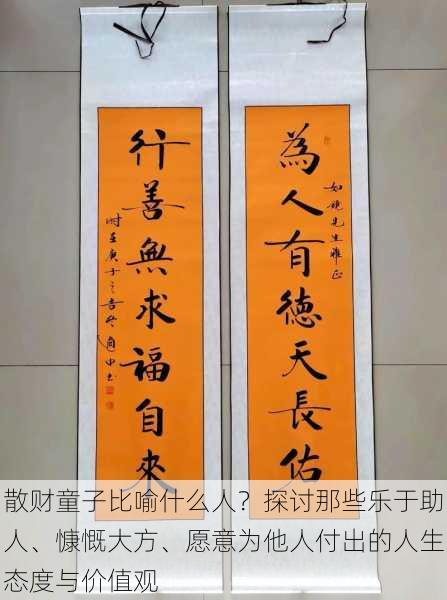 為人有德天長佑
如鏡先生雅正
行善無求福自來
散财童子比喻什么人？探讨那些乐于助
人、慷慨大方、愿意为他人付出的人生
态度与价值观